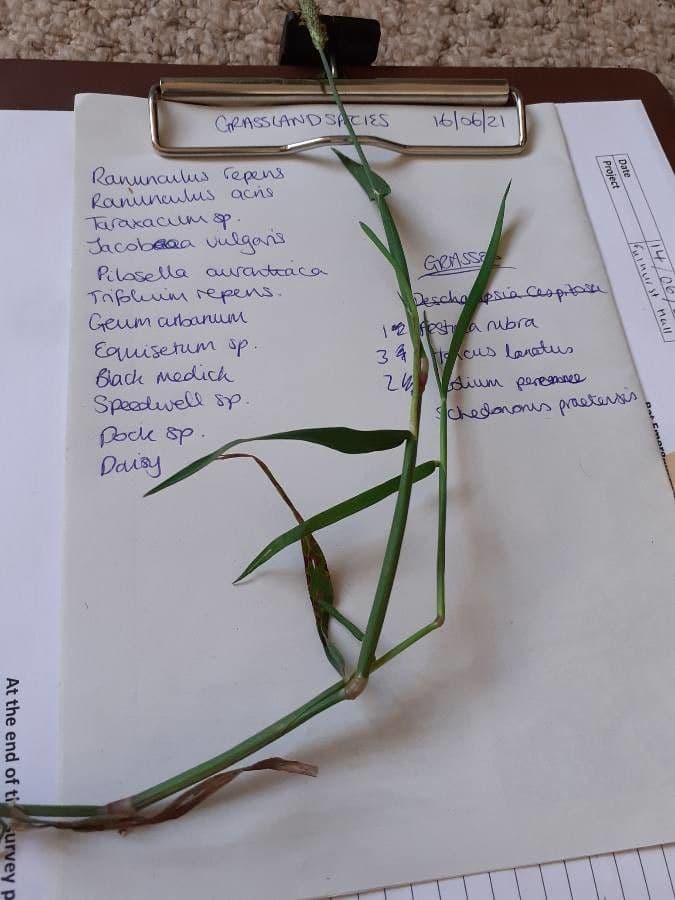 GRASSLAND SPECIES 16/06/21
Ranunculus repens
Ranunculus acris
Taraxacum sp.
Jacobaea vulgaris
Pilosella aurantiaca
Trifolium repens.
Geum urbanum
Equisetum sp.
Black medick
Speedwell sp.
Dock sp.
Daisy
GRASSES
Deschampsia Cespitosa
rubra
lanatus
perenne
Schedonorus praetensis
Date
Project
14/06/2
Fulhurst Hall
At the end of
survey p